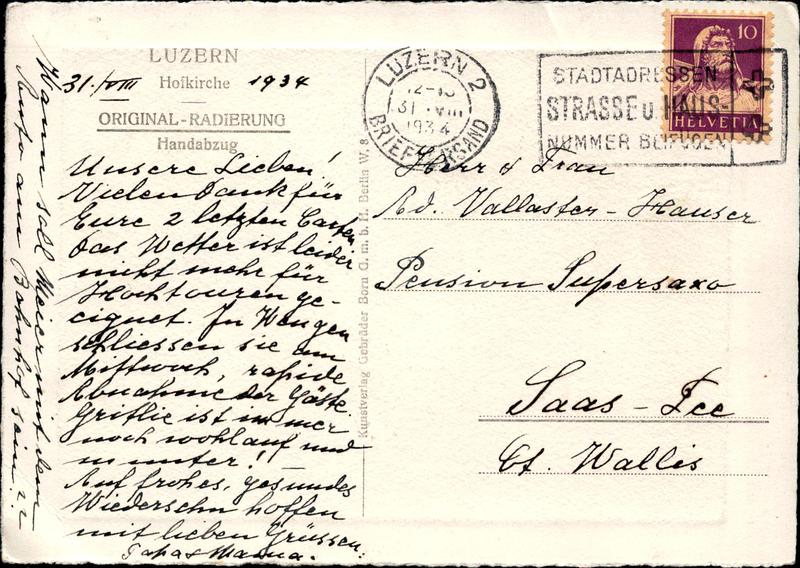 LUZERN
31. VIII Hofkirche 1934
ORIGINAL-RADIERUNG
Handabzug
Unsere Lieben!
Vielen Dank für
Eure 2 letzten Carten
das Wetter ist leider
nicht mehr für
Hochtouren ge-
eignet. In Wengen
schliessen sie am
Mittwoch, rapide
Abnahme der Gäste.
Gritlie ist immer
noch wohlauf und
munter! –
Auf frohes, gesundes
Wiedersehn hoffen
mit lieben Grüssen:
Papa & Mama.
Wann soll Meier mit dem
Auto am Bahnhof sein??
Kunstverlag Gebrüder Born G. m. b. H. Berlin W. 8
LUZERN 2
31. VIII
1934
BRIEFVERSAND
STADTADRESSEN
STRASSE u. HAUS-
NUMMER BEIFÜGEN
10
HELVETIA
Herr & Frau
Ad. Vallaster - Hauser
Pension Supersaxo
Saas - Fee
Ct. Wallis